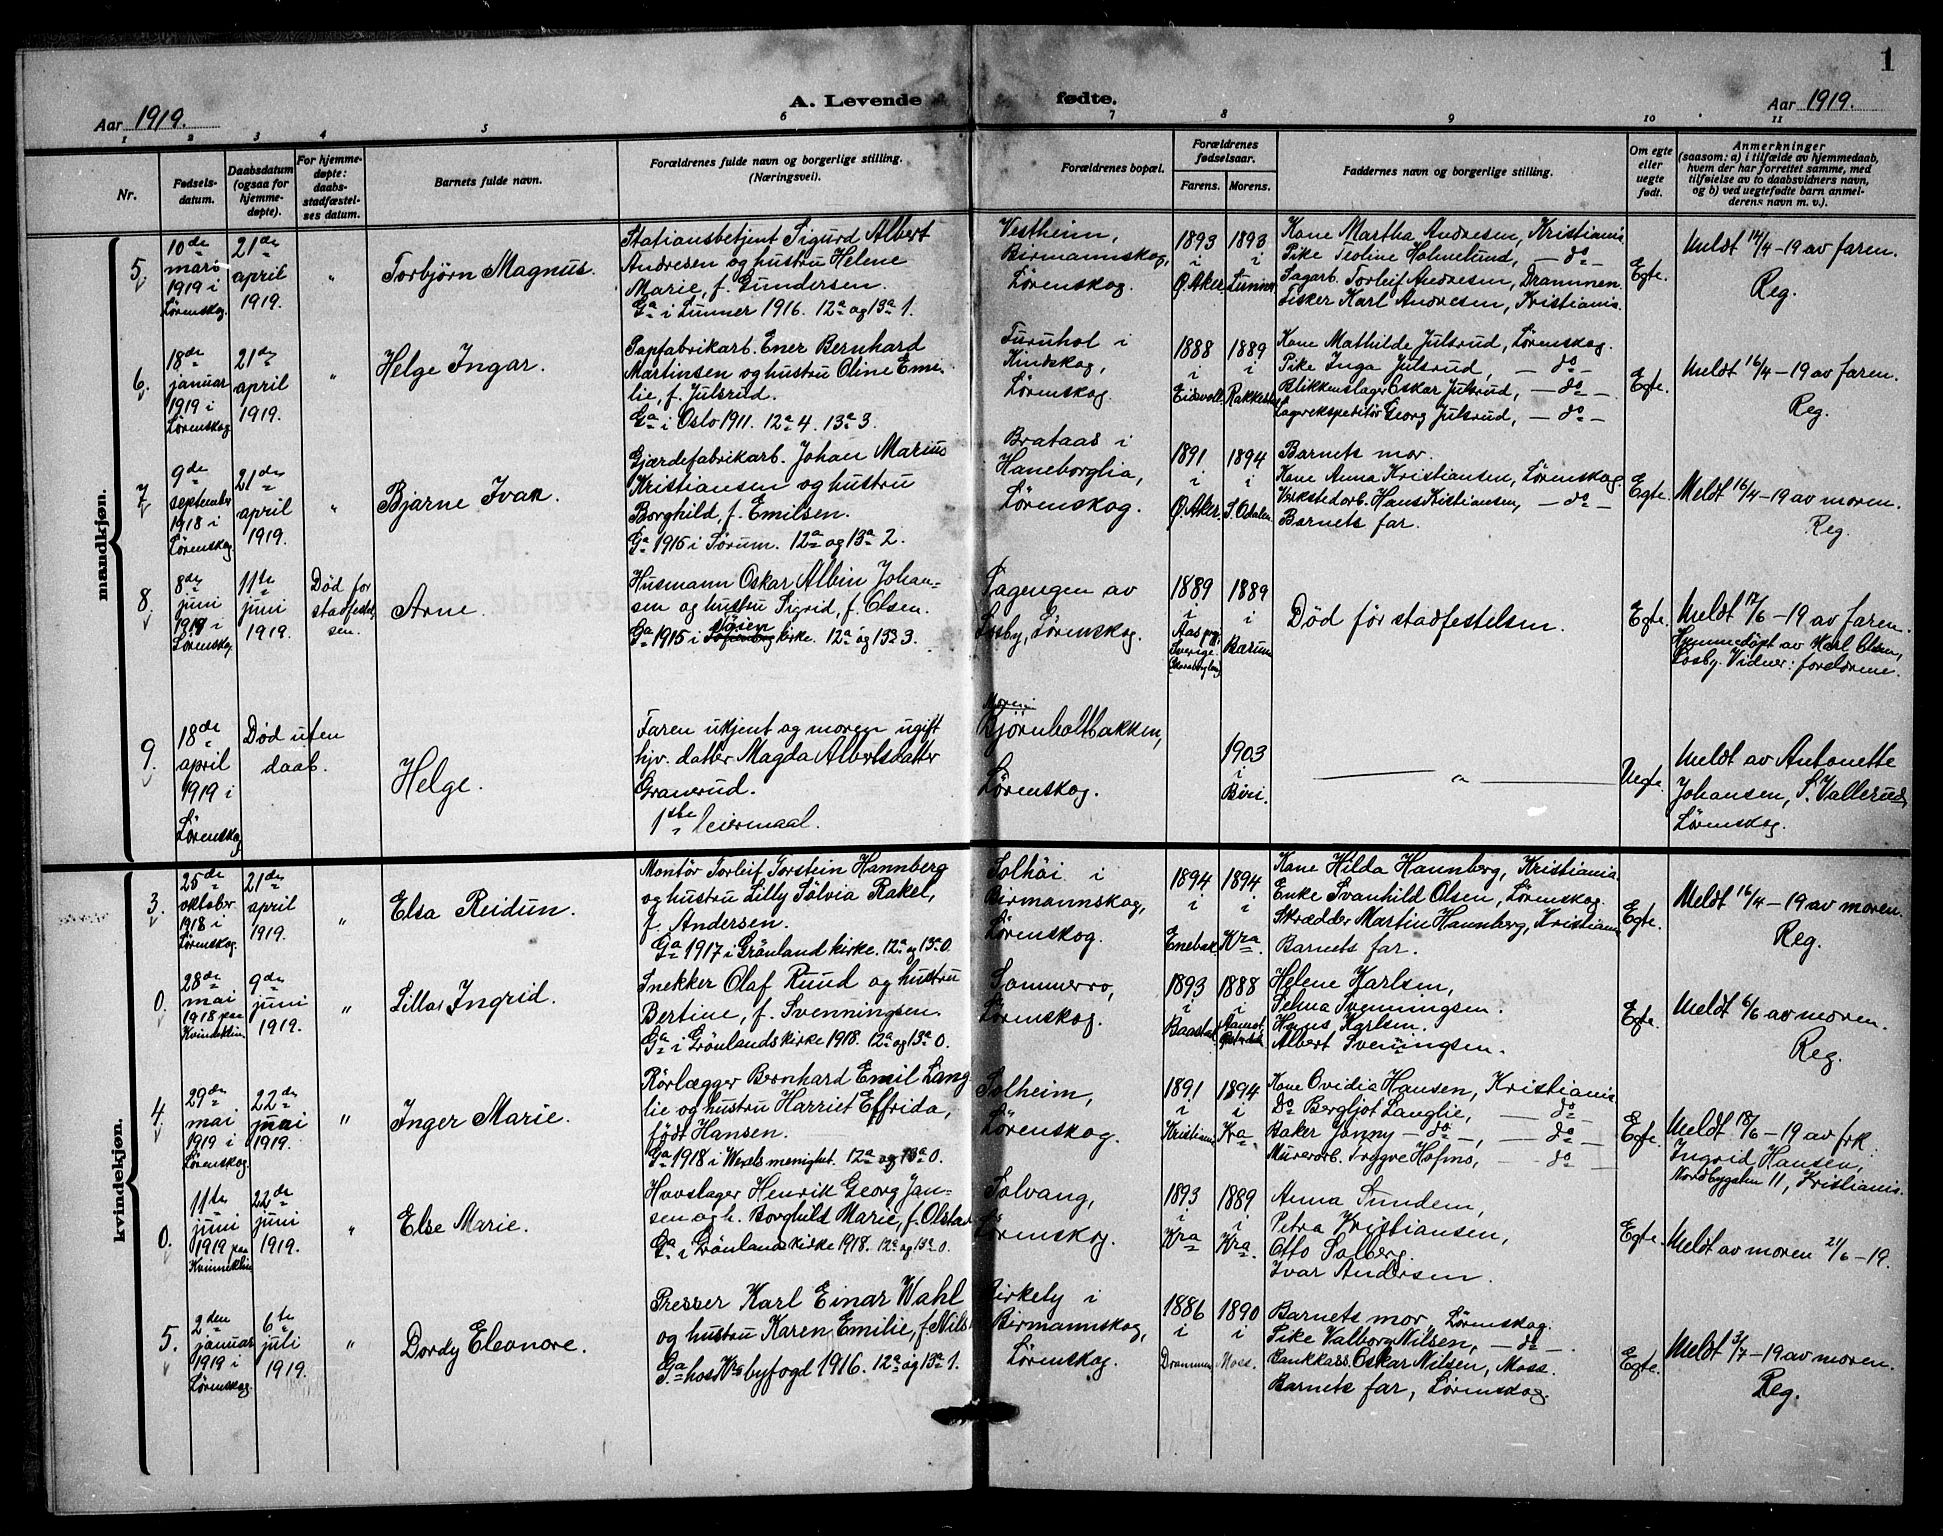 1
A. Levende fødte.
Aar 1919.
Aar 1919.
1 2 3 4 5 6 7 8 9 10 11
Nr.
Fødsels-
datum.
Daabsdatum
(ogsaa for
hjemme-
døpte).
For hjemme-
døpte:
daabs-
stadfæstel-
ses datum.
Barnets fulde navn.
Forældrenes fulde navn og borgerlige stilling.
(Næringsvei).
Forældrenes bopæl.
Forældrenes
fødselsaar.
Farens. Morens.
Faddernes navn og borgerlige stilling.
Om egte
eller
uegte
født.
Anmerkninger
(saasom: a) i tilfælde av hjemmedaab,
hvem der har forrettet samme, med
tilføielse av to daabsvidners navn,
og b) ved uegtefødte barn anmel-
derens navn m. v.).
mandkjøn.
5.
10de
mars
1919 i
Lørenskog.
21de
april
1919.
"
Torbjørn Magnus.
Stationsbetjent Sigurd Albert
Andresen og hustru Helene
Marie, f. Gundersen.
Ga i Lunner 1916. 12a og 13a 1.
Vestheim,
Birmannskog,
Lørenskog.
1893
i
Ø. Aker.
1893
i
Lunner
Kone Martha Andresen, Kristiania
Pike Teoline Holmelund, — do —
Sagarb. Torleif Andresen, Drammen.
Fisker Karl Andresen, Kristiania.
Egte.
Meldt 14/4 – 19 av faren.
Reg.
6.
18de
januar
1919 i
Lørenskog
21de
april
1919.
"
Helge Ingar.
Papfabrikarb. Ener Bernhard
Martinsen og hustru Oline Emi-
lie, f. Julsrud.
Ga i Oslo 1911. 12a 4. 13a 3.
Furuhol i
Kindskog,
Lørenskog.
1888
i
Eidsvoll
1889
i
Rakkestad
Kone Mathilde Julsrud, Lørenskog.
Pike Inga Julsrud, — do —
Blikkenslager Oskar Julsrud, — do —
Lagerekspeditör Georg Julsrud, — do —
Egte.
Meldt 16/4 – 19 av faren.
Reg.
7.
9de
september
1918 i
Lørenskog
21de
april
1919.
"
Bjarne Ivar.
Gjærdefabrikarb. Johan Marius
Kristiansen og hustru
Borghild, f. Emilsen.
Ga 1915 i Sørum. 12a og 13a 2.
Brataas i
Haneborglia,
Lørenskog.
1891
i
Ø. Aker.
1894
i
S. Odalen
Barnets mor.
Kone Anna Kristiansen, Lørenskog
Verkstedarb. Hans Kristiansen, — do —
Barnets far.
Egte.
Meldt 16/4 – 19 av moren.
Reg.
8.
8de
juni
1919 i
Lørenskog.
11te
juni
1919.
Død før
stadfestel
sen.
Arne.
Husmann Oskar Albin Johan-
sen og hustru Sigrid, f. Olsen.
Ga 1915 i kirke. 12a og 13a 3.
Fagengen av
Losby, Lørenskog.
1889
i
Sverige
1889
i
Bærum
Død før stadfestelsen.
Egte.
Meldt 17/6 – 19 av faren.
Hjemmedøpt av Karl Olsen,
Losby. Vidner: forældrene
9.
18de
april
1919 i
Lørenskog
Død uten
daab.
Helge.
Faren ukjent og moren ugift
hjv. datter Magda Albertsdatter
Granerud.
1ste leiermaal.
Moren:
Bjørnholtbakken,
Lørenskog.
1903
i
Biri.
— " —
Uegte.
Meldt av Antonette
Johansen, S. Vallerud,
Lørenskog.
kvindekjøn.
3.
25de
oktober
1918 i
Lørenskog.
21de
april
1919.
"
Elsa Reidun.
Montør Torleif Torstein Hannberg
og hustru Lilly Sølvia Rakel,
f. Andersen.
Ga 1917 i Grönland kirke. 12a og 13a 0.
Solhöi i
Birmannskog,
Lørenskog.
1894
i
Enebak
1894
i
Kra.
Kone Hilda Hannberg, Kristiania
Enke Svanhild Olsen, Lørenskog.
Skrædder Martin Hannberg, Kristiania
Barnets far.
Egte.
Meldt 16/4 – 19 av moren.
Reg.
0.
28de
mai
1918 paa
Kvindeklin.
9de
juni
1919.
"
Lillas Ingrid.
Snekker Olaf Ruud og hustru
Bertine, f. Svenningsen.
Ga i Grönlands kirke 1918. 12a og 13a 0.
Sommerro,
Lørenskog.
1893
i
Baastad
1888
i
Aamot
Helene Karlsen,
Selma Svenningsen.
Hans Karlsen.
Albert Svenningsen.
Egte.
Meldt 6/6 av moren.
Reg.
4.
29de
mai
1919 i
Lørenskog
22de
juni
1919.
"
Inger Marie.
Rörlægger Bernhard Emil Lang
lie og hustru Harriet Effrida,
født Hansen.
Ga 1918 i Wexels menighet. 12a og 13a 0.
Solheim,
Lørenskog.
1891
i
Kristiania
1894
i
Kra.
Kone Ovidia Hansen, Kristiania
Do Bergljot Langlie, — do —
Baker Jonny — do —, — do —
Murerarb. Trygve Hofmo, — do —
Egte.
Meldt 18/6 – 19 av frk.
Ingrid Hansen,
Nordbygaten 11, Kristiania.
0.
11te
juni
1919 paa
Kvinneklin
22de
juni
1919.
"
Else Marie.
Hovslager Henrik Georg Jan-
sen og h. Borghild Marie, f. Olstad
Ga i Grönlands kirke 1918. 12a og 13a 0.
Solvang,
Lørenskog.
1893
i
Kra
1889
i
Kra.
Anna Sundem,
Petra Kristiansen,
Otto Solberg.
Ivar Andersen.
Egte.
Meldt av moren 21/6 – 19.
5.
2den
januar
1919 i
Lørenskog.
6te
juli
1919.
"
Dordy Eleonore.
Presser Karl Einar Wahl
og hustru Karen Emilie, f. Nils
Ga hos Kra byfogd 1916. 12a og 13a 1.
Birkely i
Birmannskog,
Lørenskog.
1886
i
Drammen
1890
i
Moss.
Barnets mor, Lørenskog.
Pike Valborg Nilsen, — do —.
Bankkass. Oskar Nilsen, Moss.
Barnets far, Lørenskog.
Egte.
Meldt 3/7 – 19 av moren.
Reg.